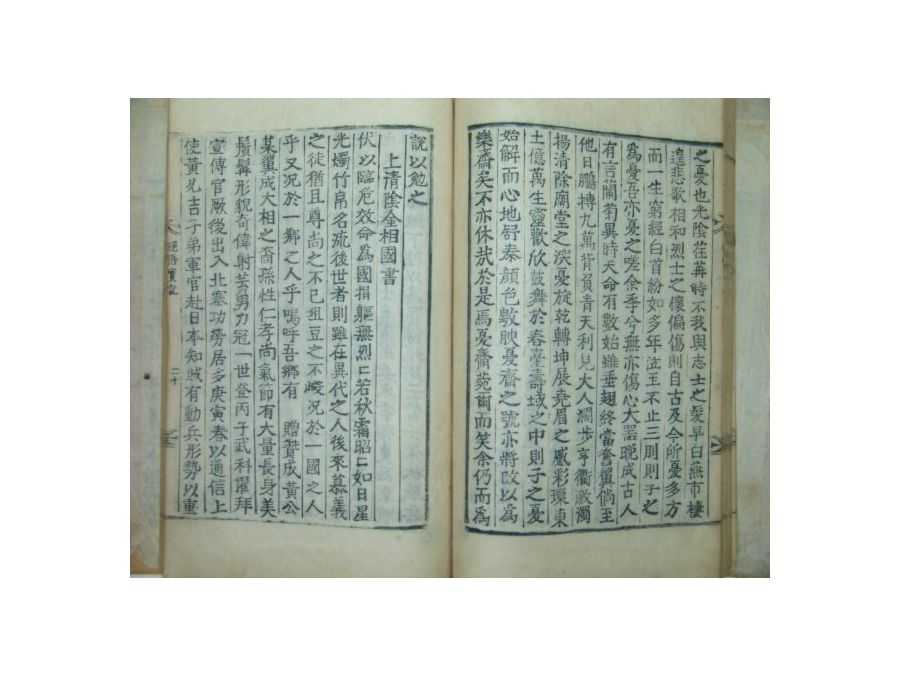 之憂也光陰荏苒時不我與志士之髮早白燕市棲
遑悲歌相和烈士之懷偏傷則自古及今所憂多方
而一生窮經白首紛如多年泣玉不止三刖則子之
為憂吾亦憂之嗟余季兮無亦傷心大器晚成古人
有言蘭菊異時天命有數始雖垂翅終當奮翼倘至
他日鵬搏九萬背負青天利見大人濶步亨衢激濁
揚清除廟堂之深憂旋乾轉坤展堯眉之感彩環東
土億萬生靈歡欣鼓舞於春臺壽域之中則子之憂
始解而心地舒泰顏色敷腴憂齋之號亦將改以為
樂齋矣不亦休哉於是焉憂齋莞爾而笑余仍而為
說以勉之
上清陰金相國書
伏以臨危效命為國捐軀無烈二若秋霜昭二如日星
光燭竹帛名流後世者則雖在異代之人後來慕義
之徒猶且尊尚之不已俎豆之不暇況於一國之人
乎又況於一鄉之人乎嗚呼吾鄉有 贈贊成黃公
某翼成大相之裔孫性仁孝尚氣節有大量長身美
鬚髯形貌奇偉射芸男力冠一世登丙子武科擢拜
宣傳官厥後出入北塞功勞居多庚寅春以通信上
使黃允吉子弟軍官赴日本知賊有動兵形勢以重
二十